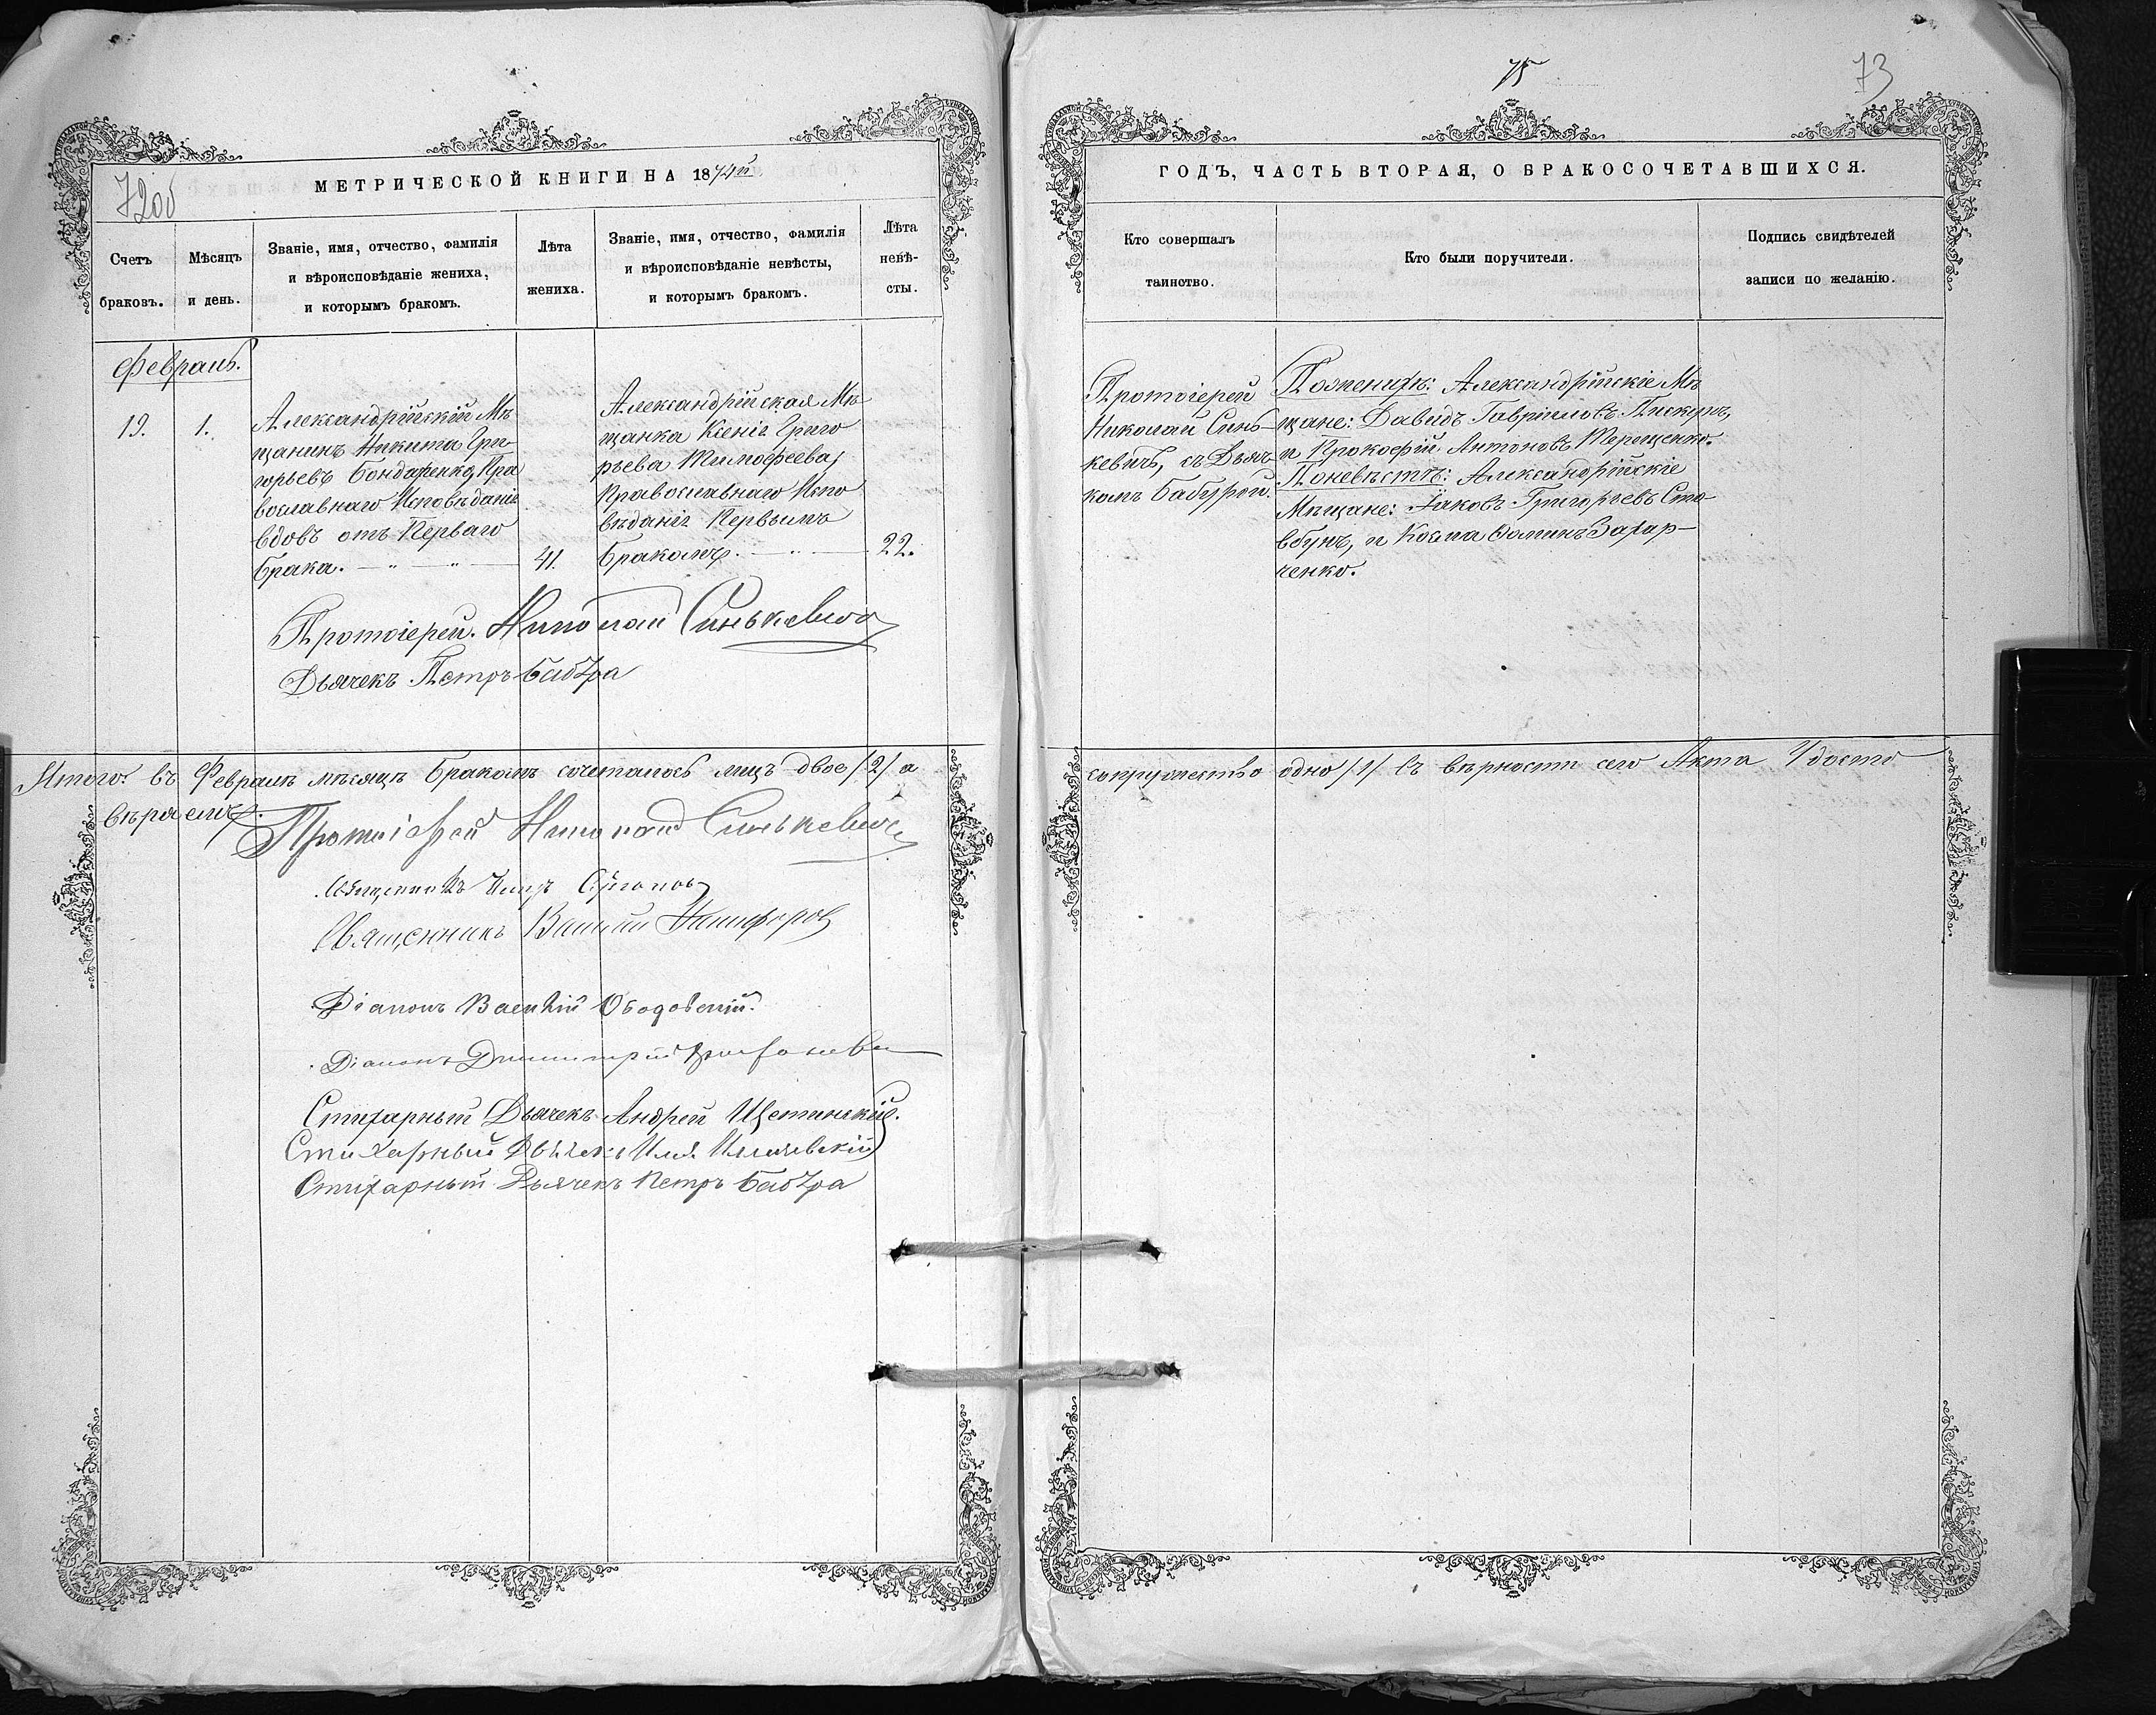 75
73
720б
МЕТРИЧЕСКОЙ КНИГИ НА 1874й
ГОДЪ, ЧАСТЬ ВТОРАЯ, О БРАКОСОЧЕТАВШИХСЯ.
Счетъ
браковъ.
Мѣсяцъ
и день.
Званіе, имя, отчество, фамилія
и вѣроисповѣданіе жениха,
и которымъ бракомъ.
Лѣта
жениха.
Званіе, имя, отчество, фамилія
и вѣроисповѣданіе невѣсты,
и которымъ бракомъ.
Лѣта
невѣ-
сты.
Кто совершалъ
таинство.
Кто были поручители.
Подпись свидѣтелей
записи по желанію.
Февраль.
19.
1.
Александрійскій Мѣ
щанинъ Никита Гри-
горьевъ Бондаренко, Пра
вославнаго Исповѣданія
вдовъ отъ Перваго
брака.
41.
Александрійская Мѣ
щанка Ксенія Григо
рьева Тимофеева,
Православнаго Испо
вѣданія Первымъ
бракомъ.
22.
Протоіерей
Николай Синь-
кевичъ, съ Дьяч
комъ Бабурой.
По женихѣ: Александрійскіе Мѣ
щане: Давидъ Гавріиловъ Пискунъ,
и Прокофій Антоновъ Терещенко.
По невѣстѣ: Александрійскіе
Мѣщане: Іаковъ Григорьевъ Сто
вбунъ, и Козма Фоминъ Захар-
ченко.
Протоіерей. Николай Синькевичъ
Дьячекъ Петръ Бабура
Итого: въ Февралѣ мѣсяцѣ бракомъ сочеталось лицъ двое /2/ а
супружество одно /1/ Въ вѣрности сего Акта Удосто
вѣряемъ.
Протоіерей Николай Синькевичъ
Священникъ
Священникъ Василий Никифоровъ
Діаконъ Василій Ободовскій.
Діаконъ Димитрій
Стихарный Дьячекъ Андрей Щетинскій.
Стихарный Дьячекъ Илія
Стихарный Дьячекъ Петръ Бабура